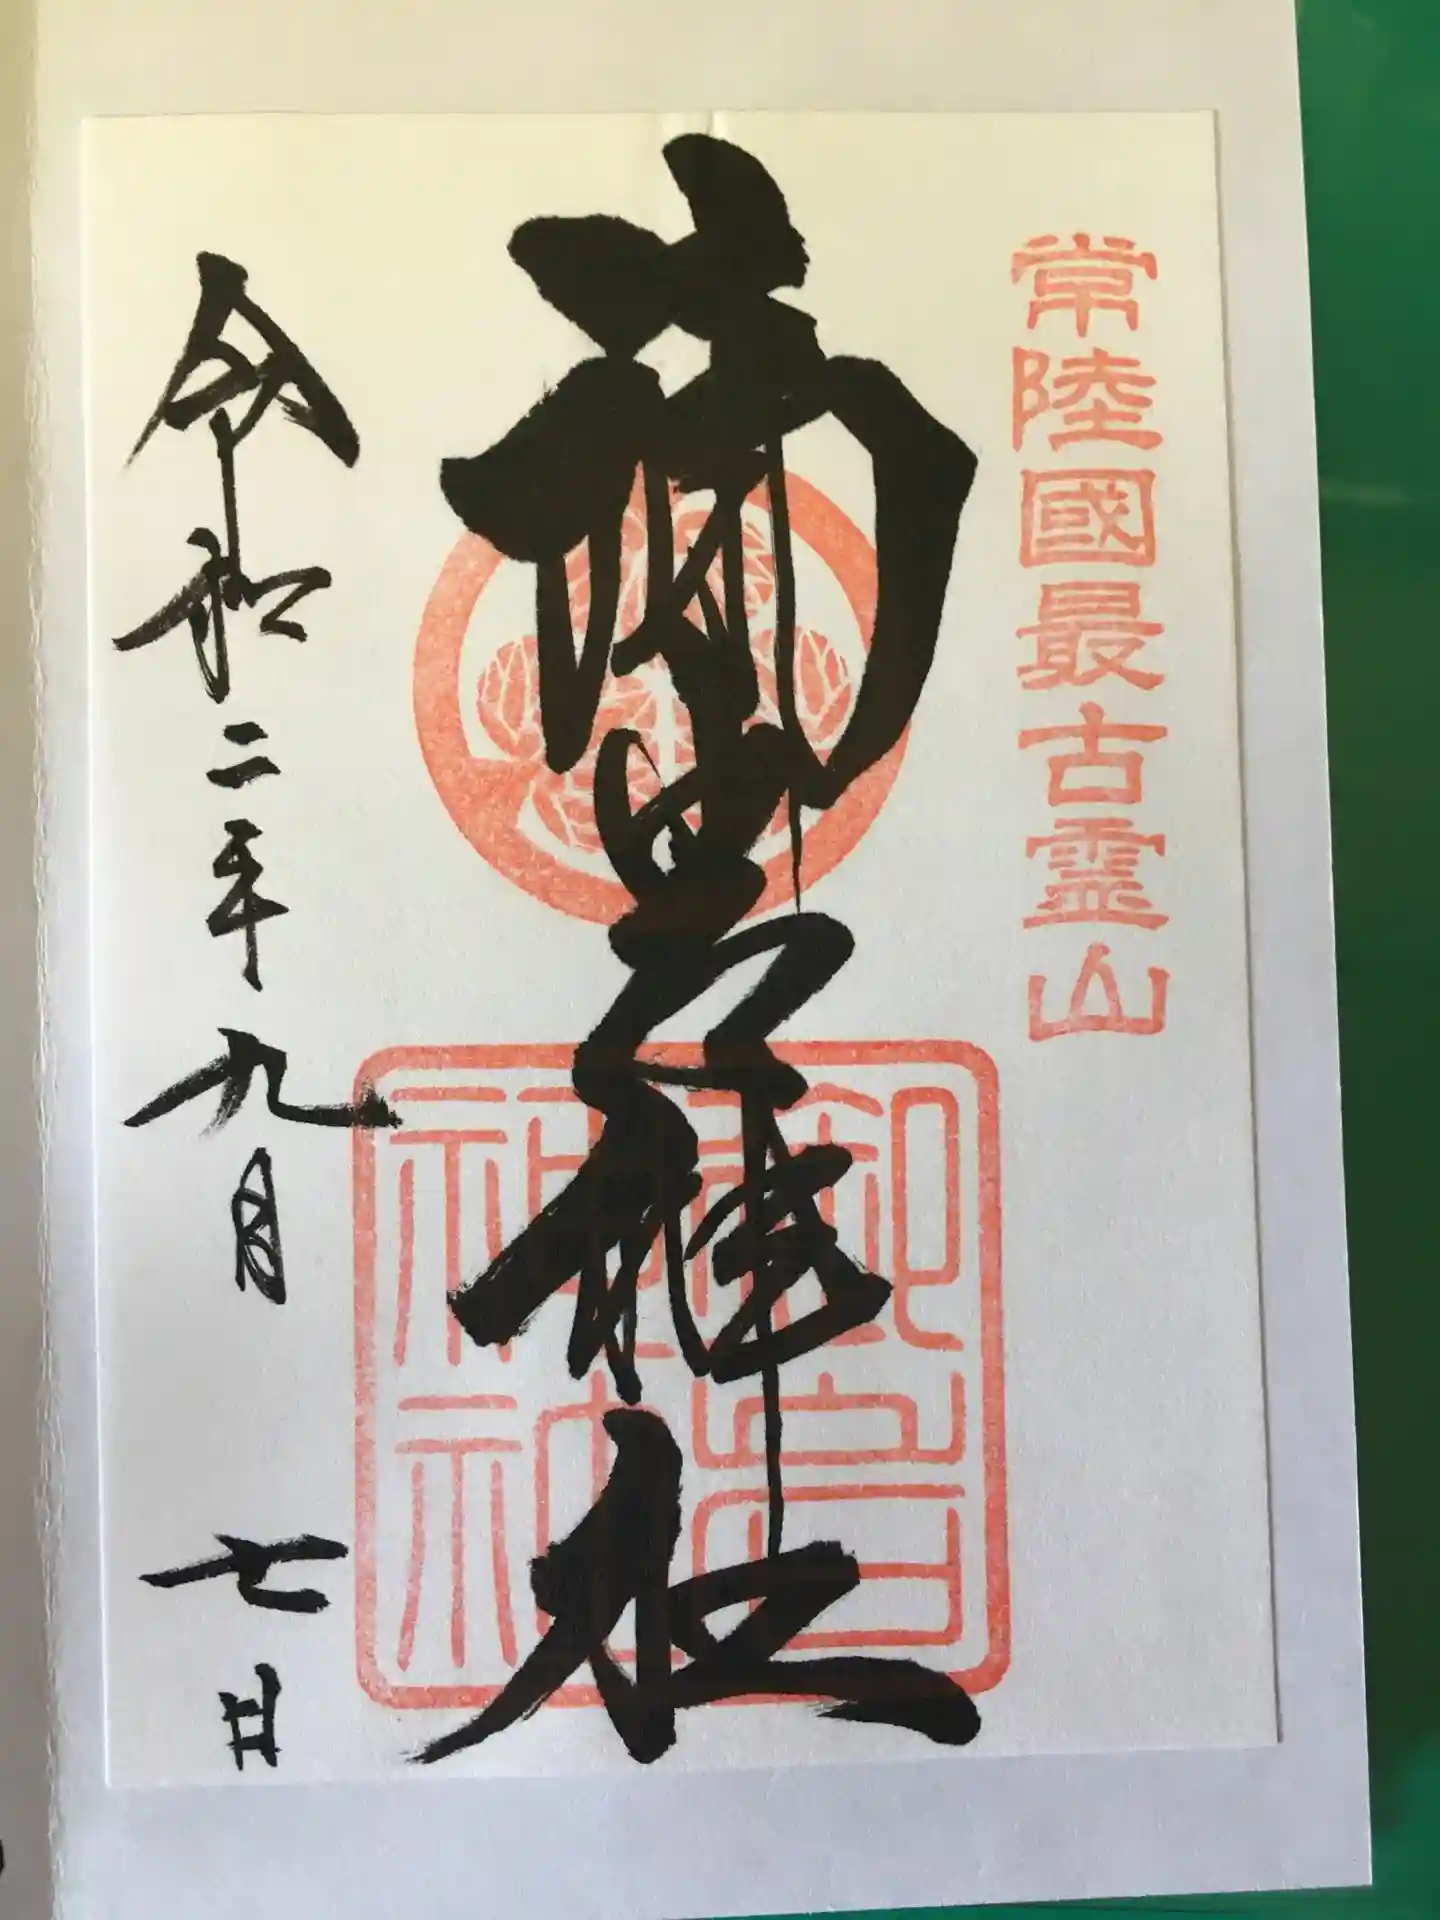 常陸國最古霊山
御岩神社
御岩神社
令和二年九月七日